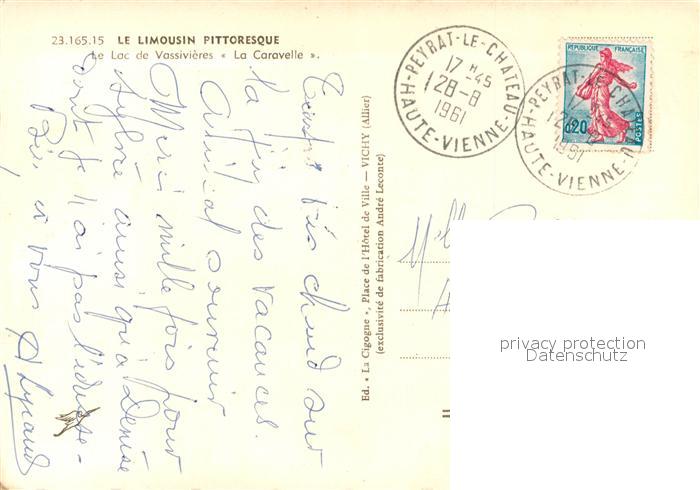 23.165.15 LE LIMOUSIN PITTORESQUE
Le Lac de Vassivières « La Caravelle ».
très chaud sur
la fin des vacances.
Amical souvenir
Merci mille fois pour
Sylvie ainsi qu'à Denise
dont je n'ai pas l'adresse -
à vous
Ed. « La Cigogne », Place de l'Hôtel de Ville — VICHY (Allier)
(exclusivité de fabrication André Leconte)
PEYRAT-LE-CHATEAU
17 H -45
28-8
1961
HAUTE-VIENNE
REPUBLIQUE FRANÇAISE
0,20
POSTES
PEYRAT-LE-CHA
1961
HAUTE-VIENNE
Mlle
privacy protection
Datenschutz